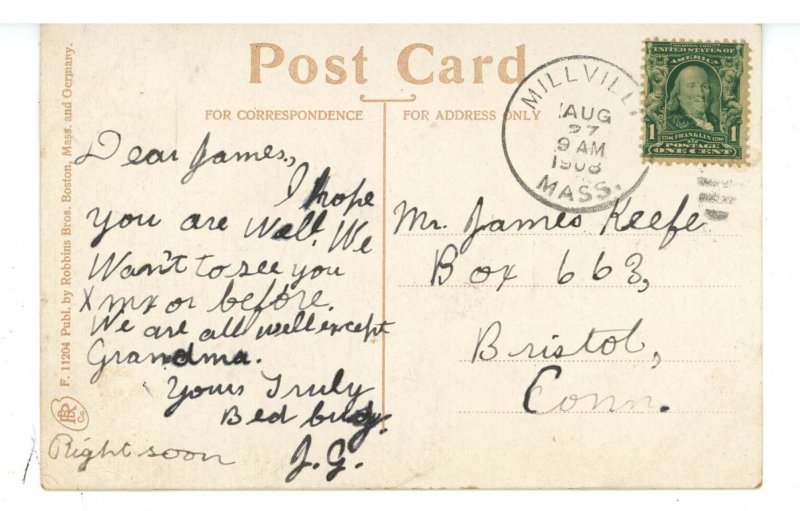 Post Card
FOR CORRESPONDENCE
FOR ADDRESS ONLY
F. 11204 Publ. by Robbins Bros. Boston, Mass. and Germany.
Dear James.,
I hope
you are Well. We
Want to see you
Xmx or before.
We are all well except
Grandma.
Yours Truly
Bed bug.
J.G.
Right soon
MILLVILL
AUG
27
9 AM
1908
MASS.
SERIES 1902
UNITED STATES OF
AMERICA
1 FRANKLIN 1
POSTAGE
ONE CENT
Mr. James Keefe
Box 663,
Bristol,
Conn.